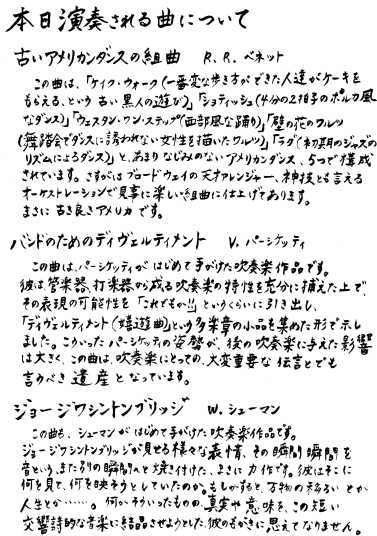 本日演奏される曲について
古いアメリカンダンスの組曲 R. R. ベネット
この曲は、「ケイク・ウォーク(一番変な歩き方ができた人達がケーキを
もらえる、という古い黒人の遊び)」「ショティッシュ(4分の2拍子のポルカ風
なダンス)」「ウェスタン・ワン・ステップ(西部風な踊り)」「壁の花のワルツ
(舞踏会でダンスに誘われない女性を描いたワルツ)」「ラグ(初期のジャズの
リズムによるダンス)」と、あまりなじみのないアメリカンダンス、5つで構成
されています。さすがはブロードウェイの天才アレンジャー、神技とも言える
オーケストレーションで見事に楽しい組曲に仕上げてあります。
まさに古き良きアメリカです。
バンドのためのディヴェルティメント V. パーシケッティ
この曲は、パーシケッティがはじめて手がけた吹奏楽作品です。
彼は、管楽器、打楽器から成る吹奏楽の特性を充分に捕えた上で、
その表現の可能性を「これでもか!!」というくらいに引き出し、
「ディヴェルティメント(嬉遊曲)」という多楽章の小品を集めた形で示し
ました。こういったパーシケッティの姿勢が、後の吹奏楽に与えた影響
は大きく、この曲は、吹奏楽にとっての、大変重要な伝言とでも
言うべき遺産となっています。
ジョージワシントンブリッジ W. シューマン
この曲も、シューマンがはじめて手がけた吹奏楽作品です。
ジョージワシントンブリッジが見せる様々な表情、その瞬間瞬間を
音という、また別の瞬間へと焼き付けた、まさに力作です。彼はそこに
何を見て、何を映そうとしていたのか。もしかすると、万物の移ろいとか
人生とか……。何かそういったものの、真実や意味を、この短い
交響詩的な音楽に結晶させようとした、彼のもがきに思えてなりません。